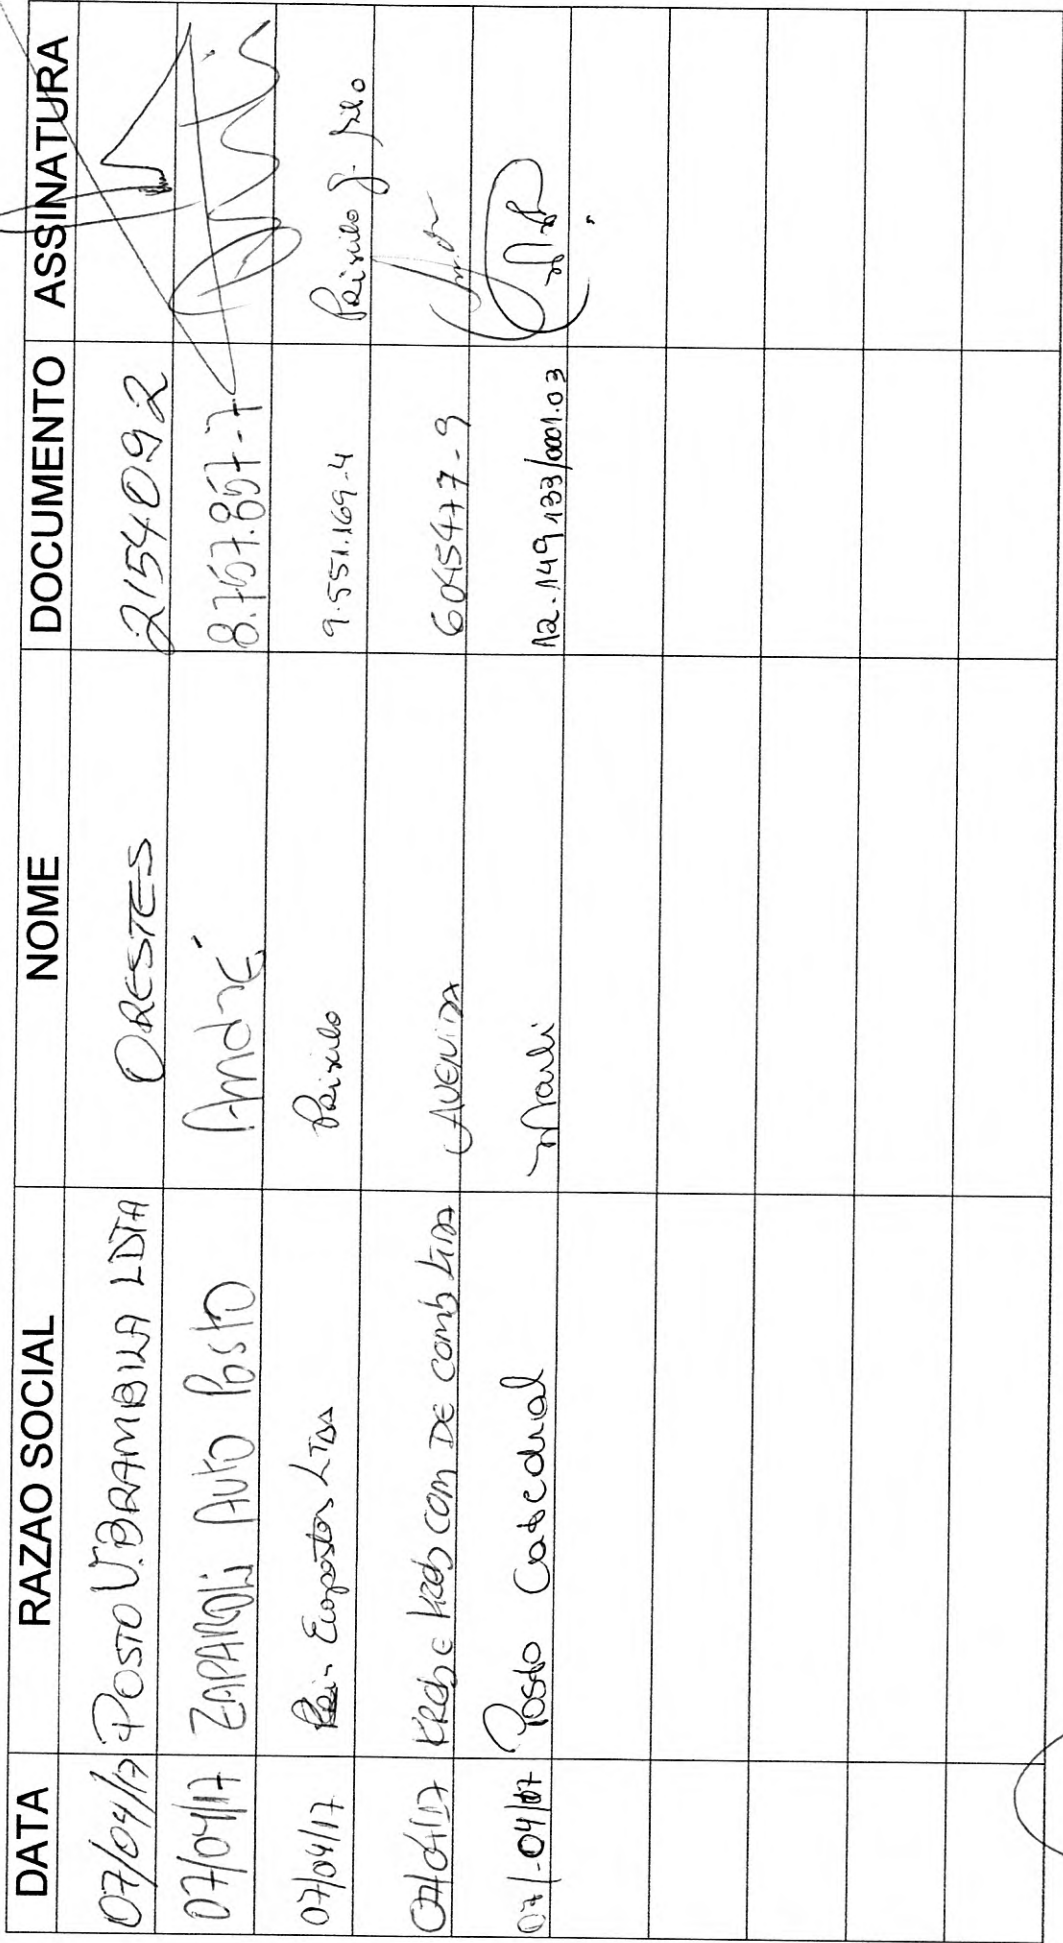 DATA RAZAO SOCIAL NOME DOCUMENTO ASSINATURA
07/04/17 POSTO V. BRAMBILA LDTA ORESTES 2154092
07/04/17 ZAPAROLi AUTO POSTO André 8.757.857-7
07/04/17 Ecopostos LTDA 9.551.169-4
07/04/17 KRebs e Krebs COM DE comb LTDA 6045477-9
07/-04/17 Posto Catedral Marli 12.149.133/0001.03